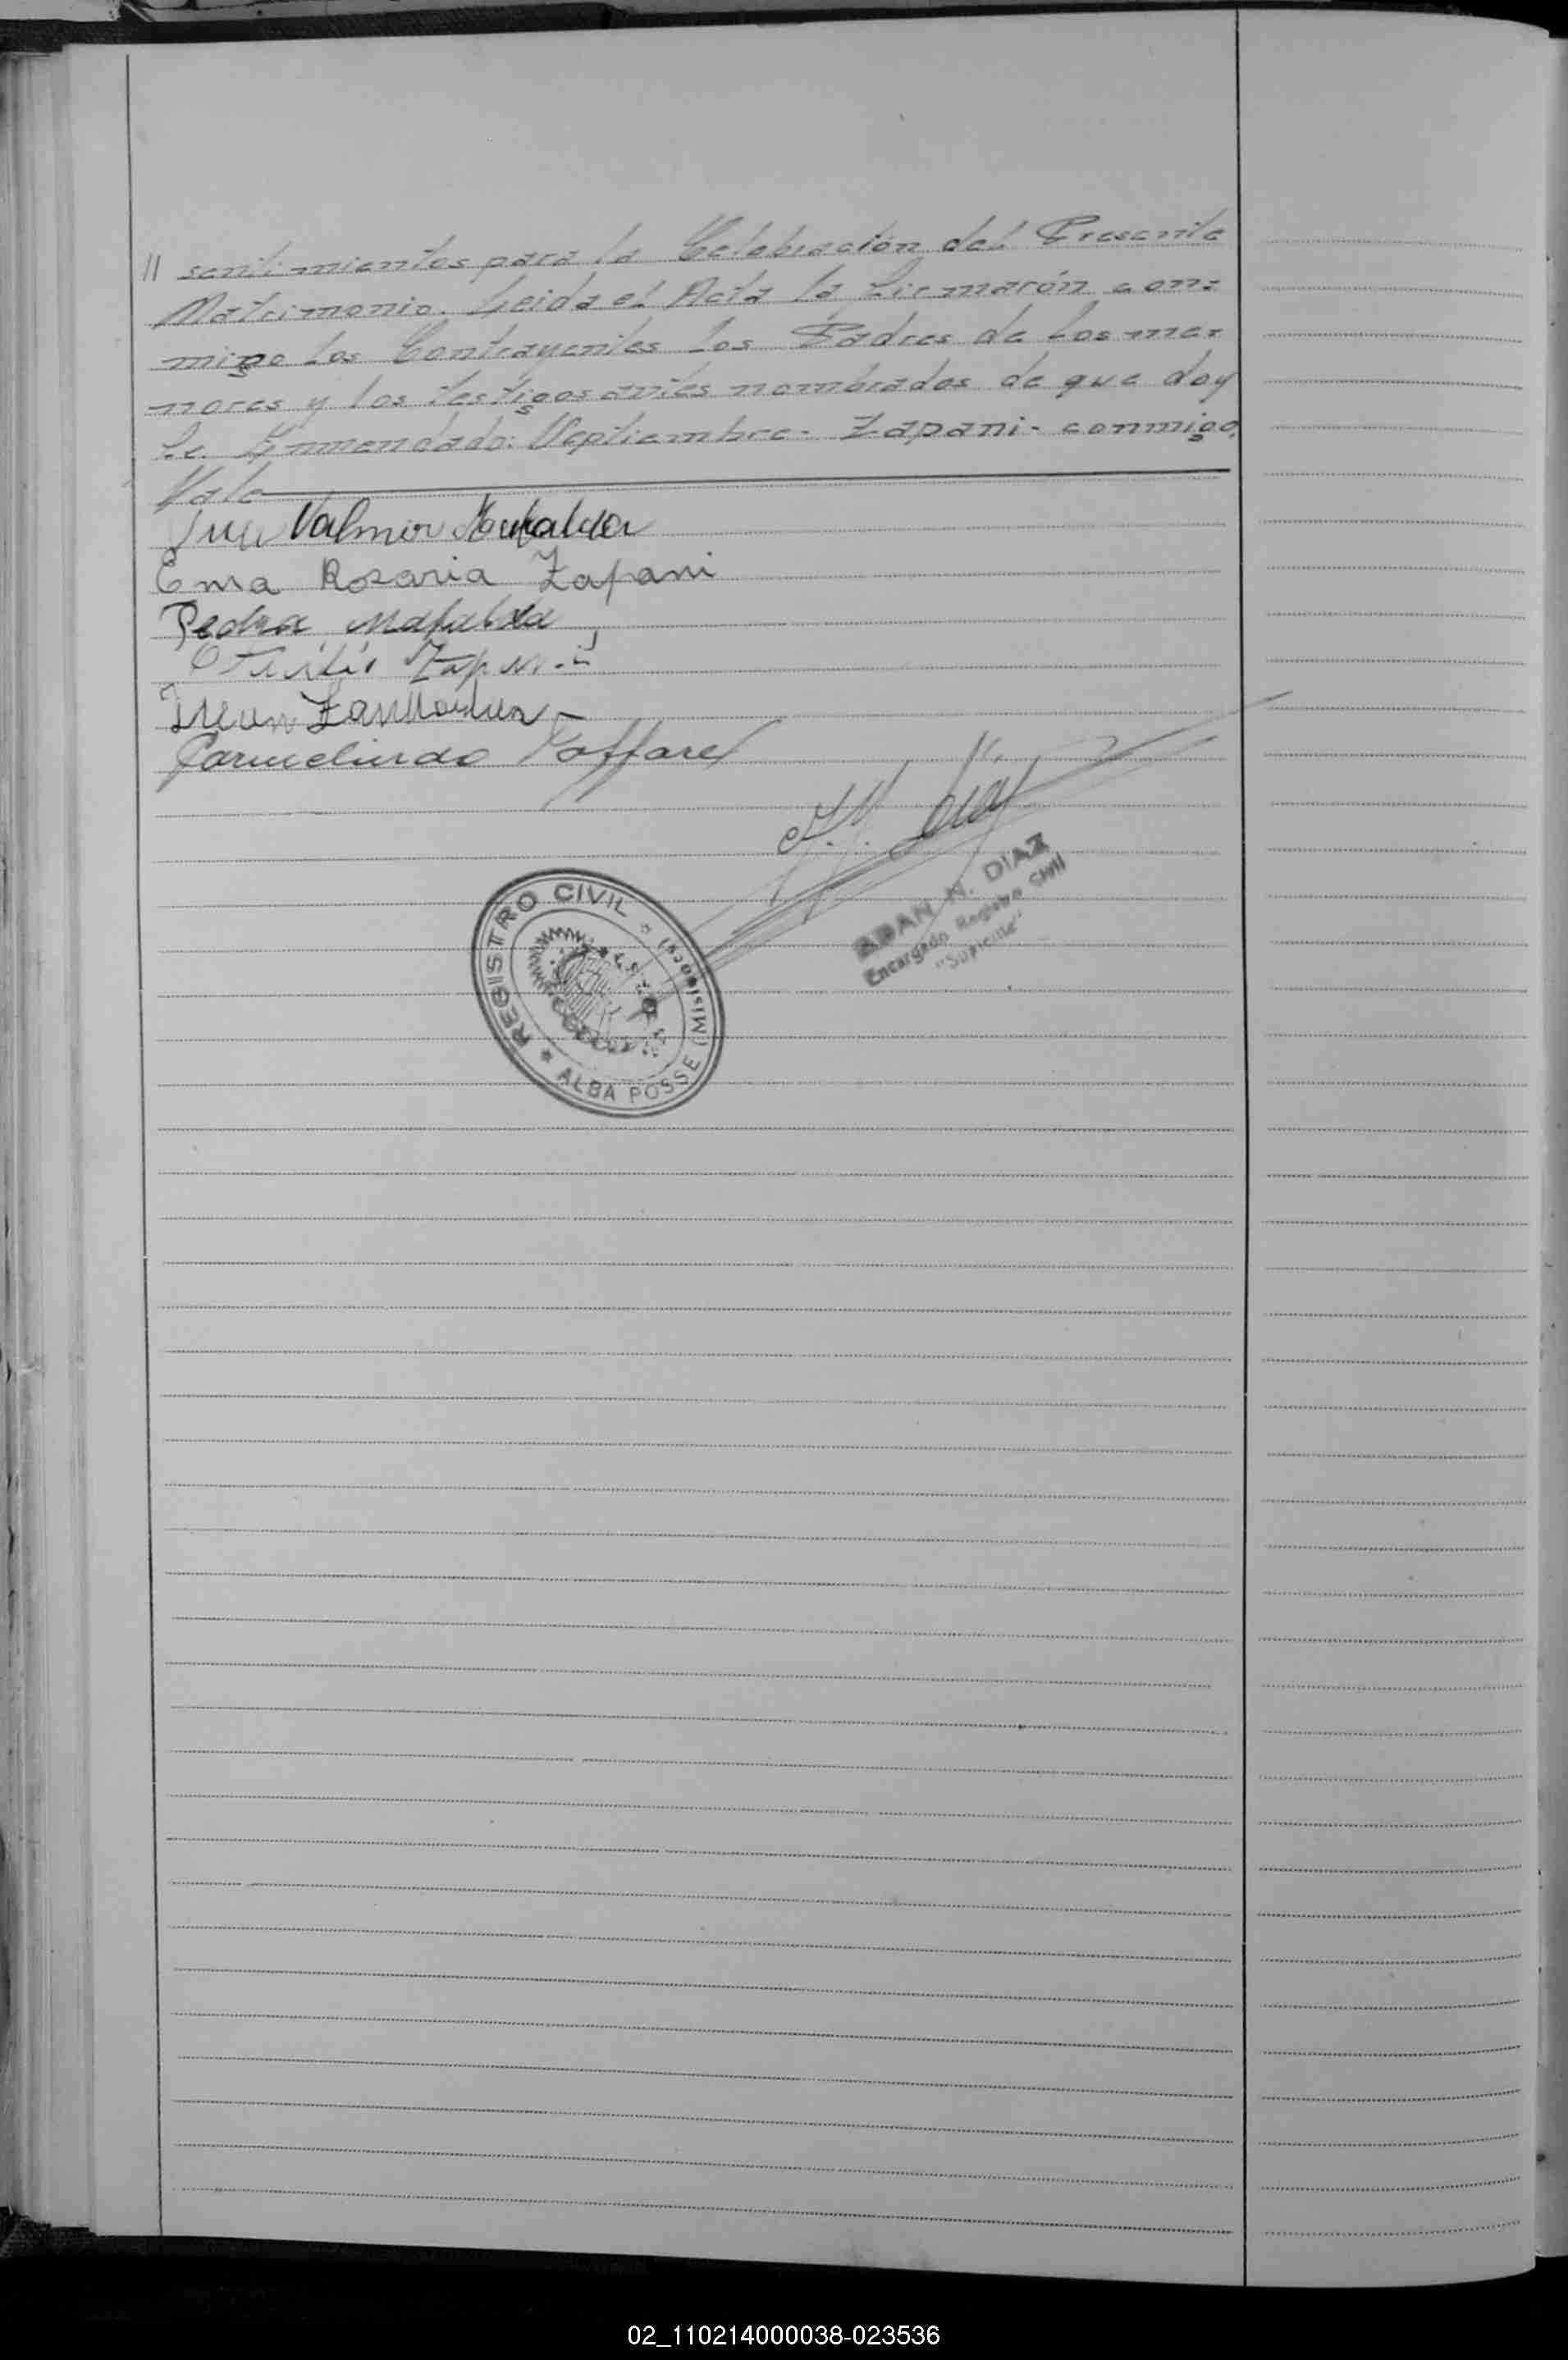 // sentimientos para la Celebración del Presente
Matrimonio. Leida el Acta la firmarón con=
migo los Contrayentes los Padres de los me=
nores y los testigos antes nombrados de que doy
fe. Enmendado: Septiembre - Zapani - conmigo.
Vale
Valmor
Ema Rosaria Zapani
Pedra Mafalda
Zapani
Carmelindo Toffarel
A. N. Diaz
ADAN N. DIAZ
Encargado Registro Civil
"Suplente"
REGISTRO CIVIL
ALBA POSSE (Misiones)
02_110214000038-023536